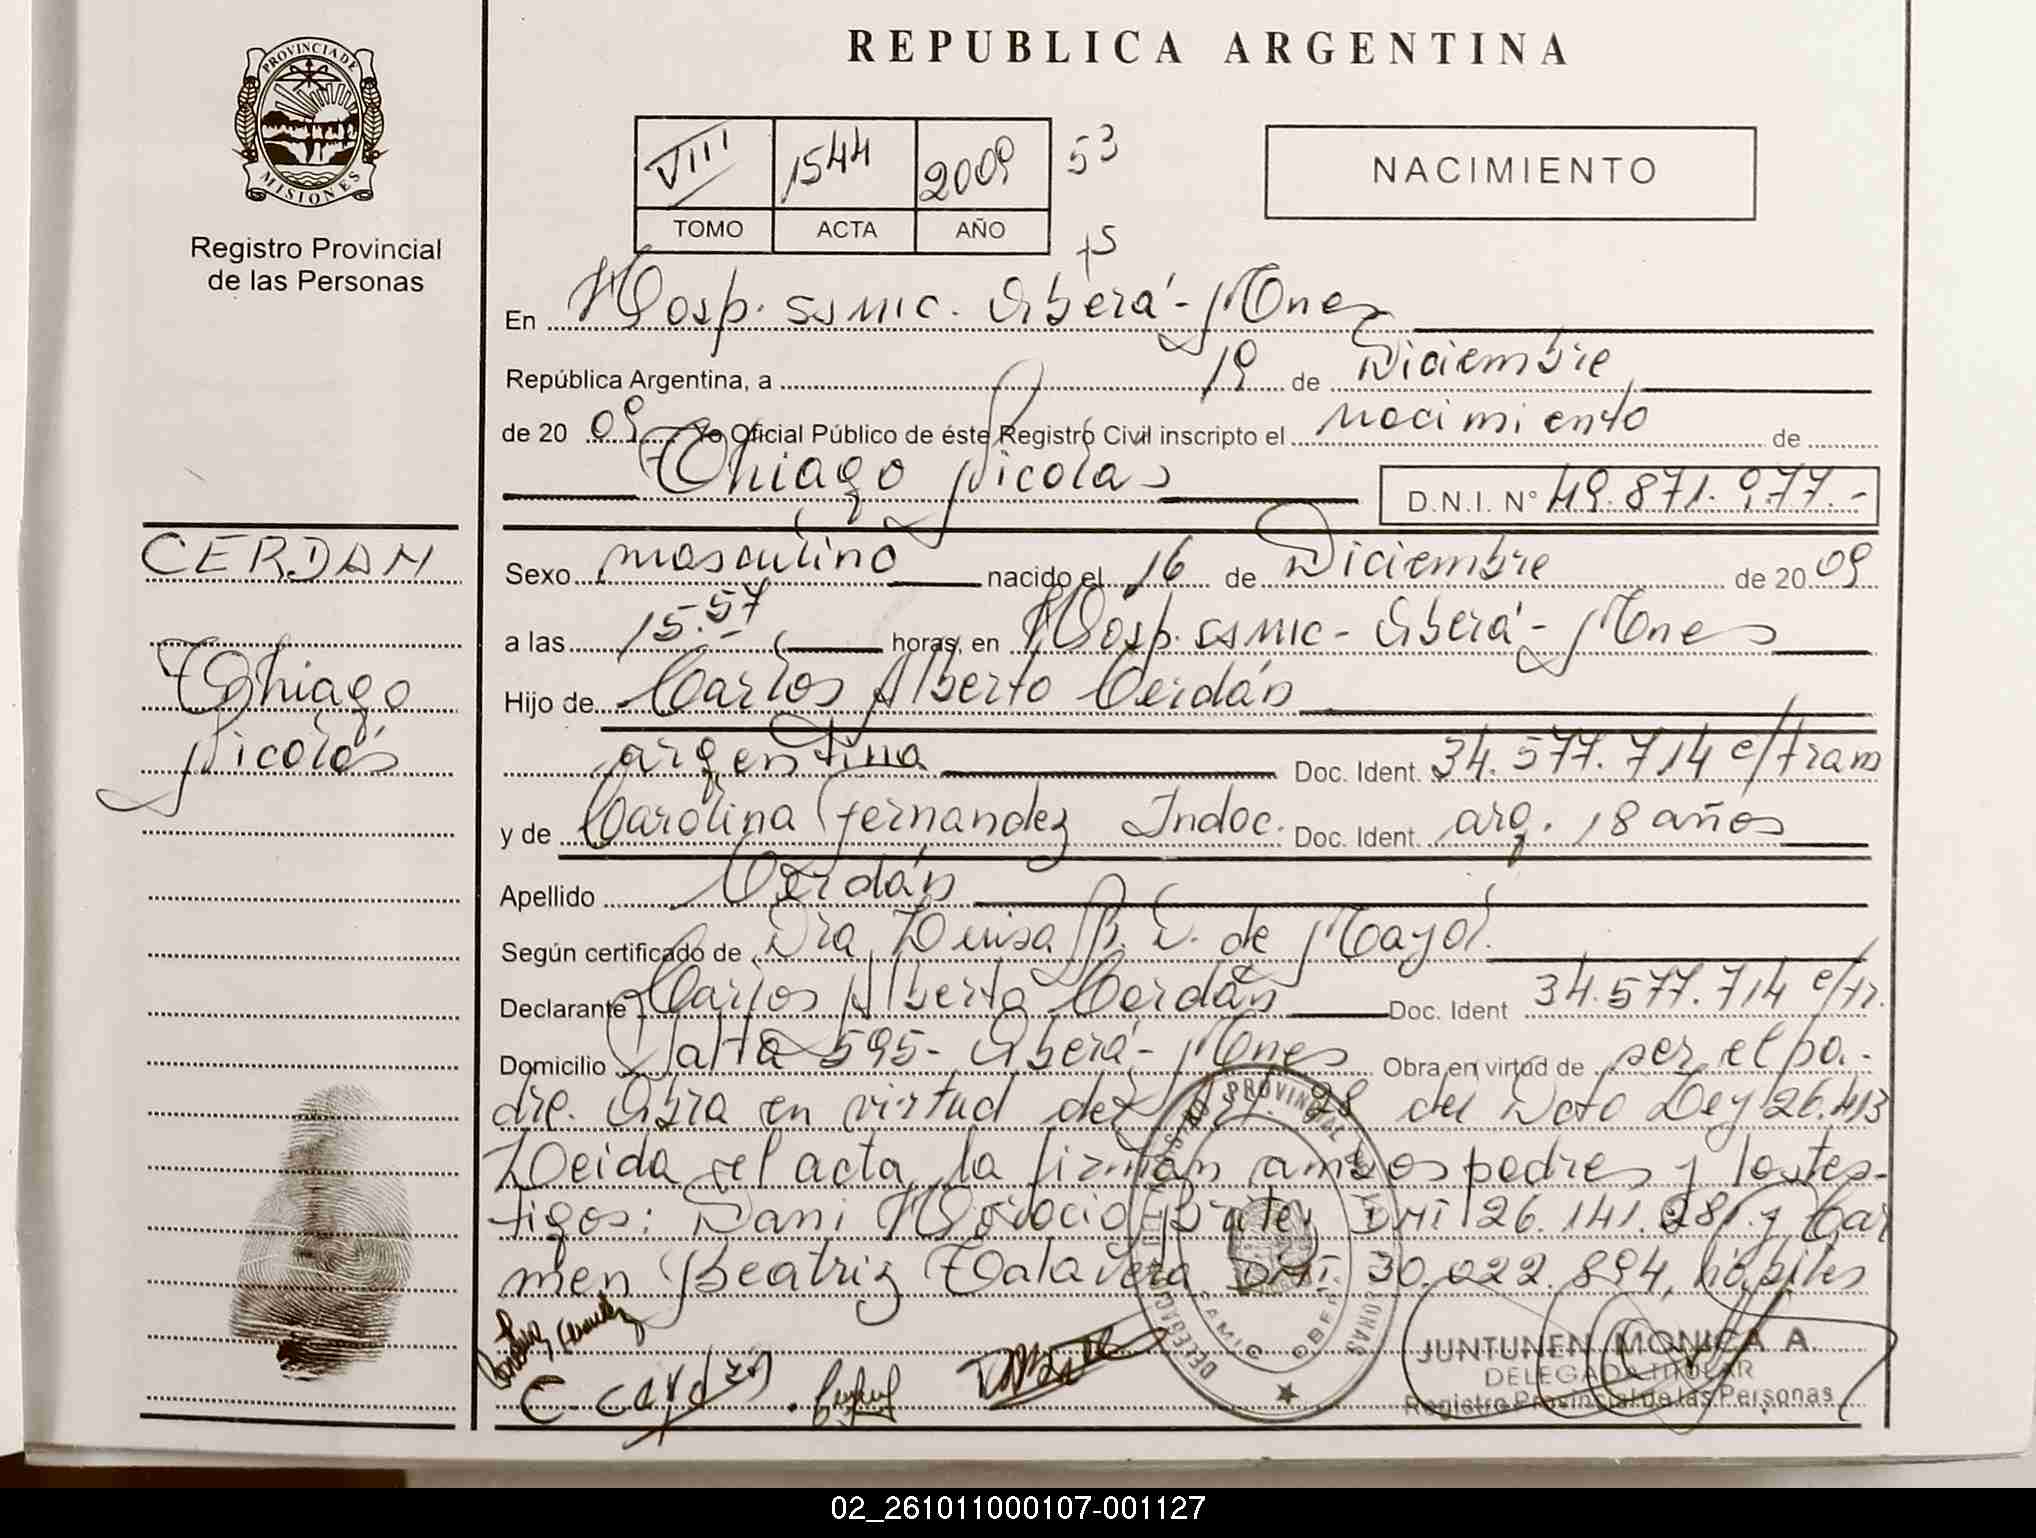 PROVINCIA DE
MISIONES
Registro Provincial
de las Personas
REPUBLICA ARGENTINA
VIII 1544 2009 53
TOMO ACTA AÑO
NACIMIENTO
En Hosp. SSMIC. Oberá - Mnes
República Argentina, a 19 de Diciembre
de 20 09 Yo Oficial Público de éste Registro Civil inscripto el nacimiento de
Thiago Nicolás
D.N.I. Nº 49.871.977.-
CERDAN
Thiago
Nicolás
Sexo masculino nacido el 16 de Diciembre de 20 09
a las 15.57 horas, en Hosp. SSMIC - Oberá - Mnes
Hijo de Carlos Alberto Cerdán
argentina Doc. Ident. 34.577.714 e/tram
y de Carolina Fernandez Indoc. Doc. Ident. arg. 18 años
Apellido Cerdán
Según certificado de Dra Luisa B. D. de Mayol
Declarante Carlos Alberto Cerdán Doc. Ident 34.577.714 e/tr.
Domicilio Salta 595 - Oberá - Mnes Obra en virtud de ser el pa-
dre. Obra en virtud del Art. 28 del Dcto Ley 26.413
Leida el acta, la firman ambos padres y los tes-
tigos: Dani Horacio DNI 26.141.281 y Car
men Beatriz Talavera DNI 30.022.894, hábiles
Carolina Fernandez
C. Cerdan
JUNTUNEN MONICA A.
DELEGADA TITULAR
Registro Provincial de las Personas
02_261011000107-001127